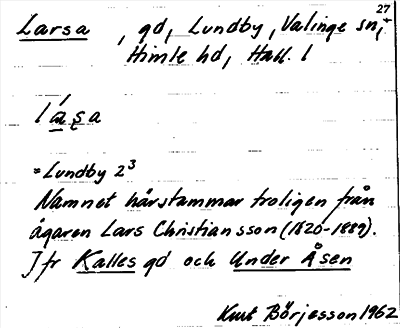 27
Larsa, gd, Lundby, Valinge sn,
Himle hd, Hall. l
lása
= Lundby 2³
Namnet härstammar troligen från
ägaren Lars Christiansson (1820-1889).
Jfr Kalles gd och Under Åsen
Kurt Börjesson 1962